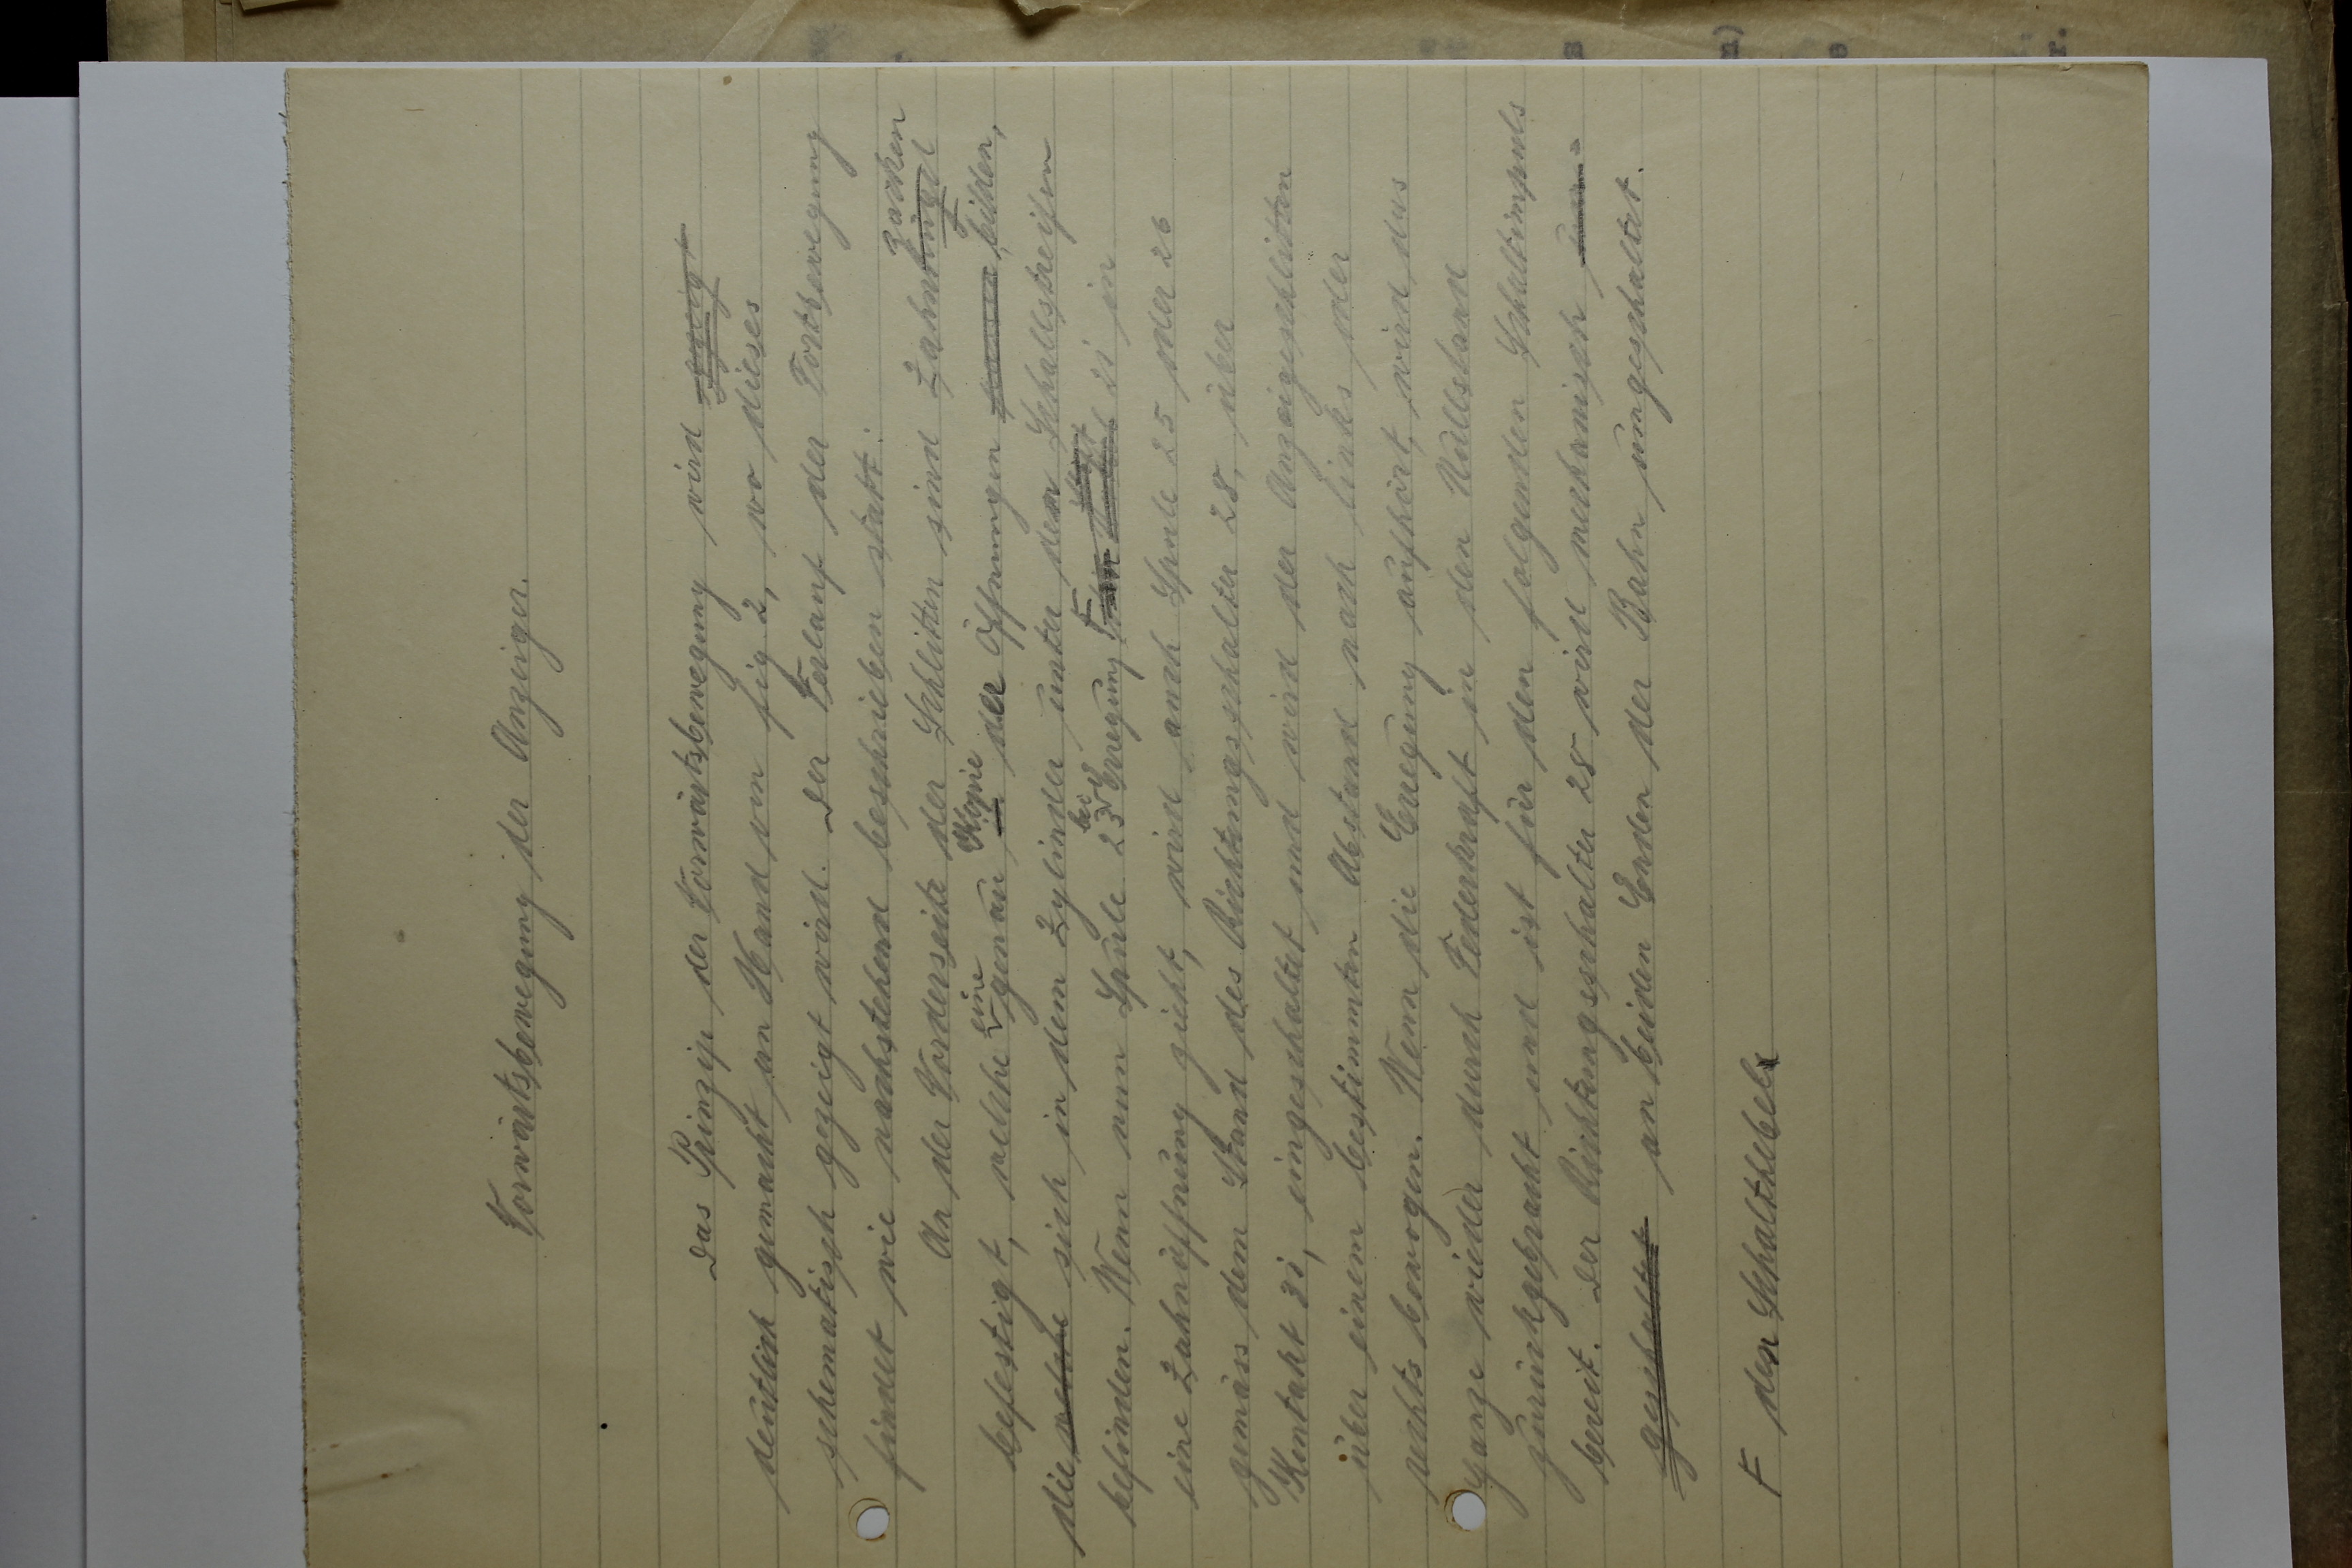 Vorwärtsbewegung der Anzeiger.
Das Prinzip der Vorwärtsbewegung wird gezeigt
deutlich gemacht an Hand von fig 2, wo dieses
schematisch gezeigt wird. Der Verlauf der Fortbewegung
findet wie nachstehend beschrieben statt:
An der Vorderseite der Schlitten sind Zahn zacken
befestigt, welche eine genaue Kopie der Öffnungen bilden,
die welche sich in dem Zylinder unter dem Schallstreifen
befinden. Wenn nun Spule 23 bei Erregung F 21 in
eine Zahnöffnung zieht, wird auch Spule 25 oder 26
gemäss dem Stand des Richtungsschalter 28, über
Kontakt 31, eingeschaltet und wird der Anzeigeschlitten
über einem bestimmten Abstand nach links oder
rechts bewogen. Wenn die Erregung aufhört, wird das
Ganze wieder durch Federkraft in den Nullstand
zurückgebracht und ist für den folgenden Schaltimpuls
bereit. Der Richtungsschalter 28 wird mechanisch
geschaltet an beiden Enden der Bahn umgeschaltet.
F den Schalthebel